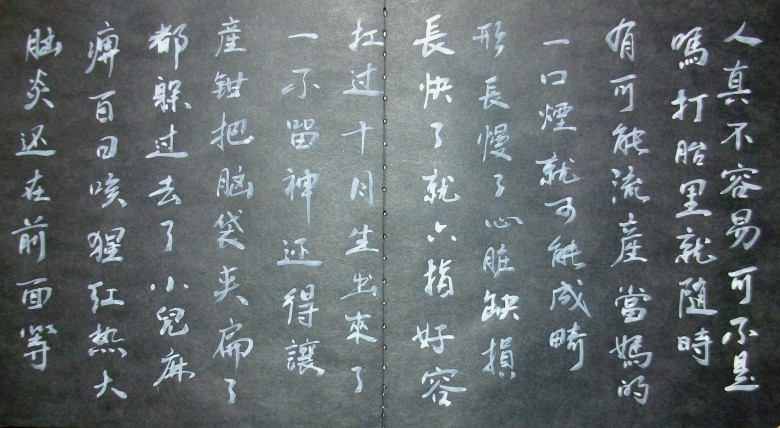 人真不容易可不是
嗎打胎里就随時
有可能流產當媽的
一口煙就可能成畸
形長慢了心脏缺損
長快了就六指好容
扛过十月生出來了
一不留神还得讓
產钳把脑袋夹扁了
都躲过去了小兒麻
痹百日咳猩红热大
脑炎还在前面等